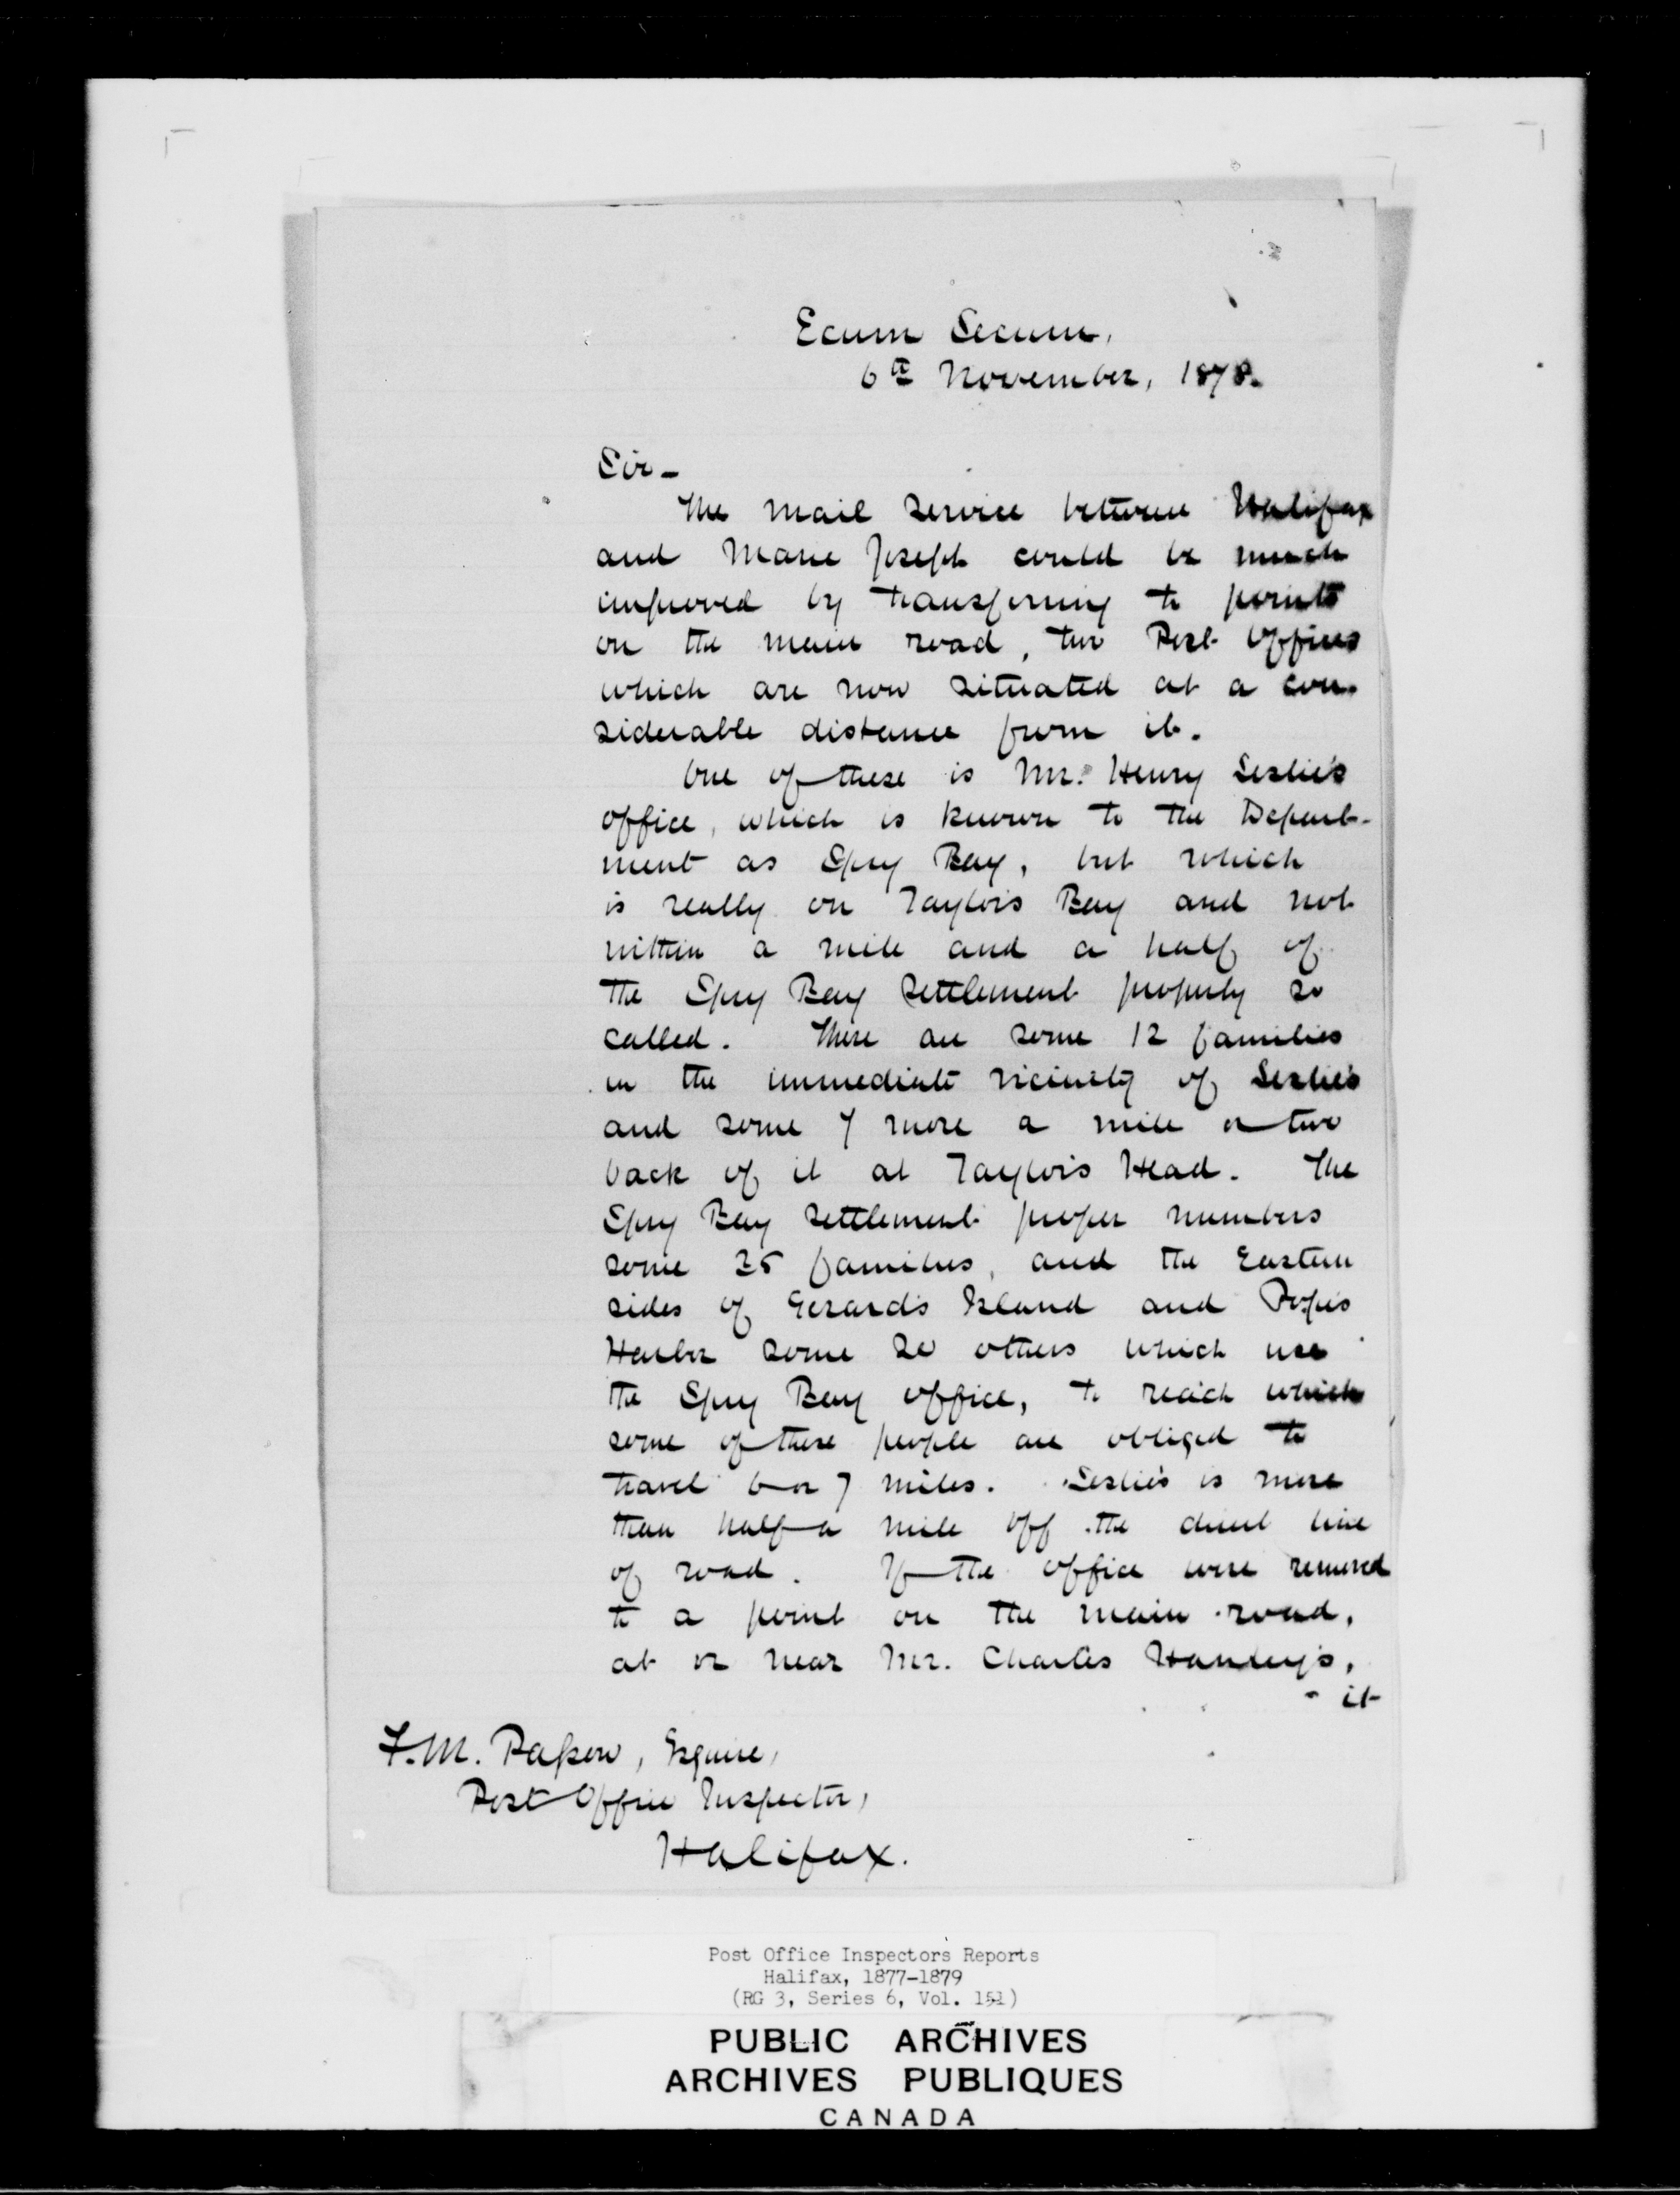 Ecum Secum,
6th November, 1878.
Sir-
The mail service between Halifax
and Marie Joseph could be much
improved by transferring to points
on the main road, two Post Offices
which are now situated at a con-
siderable distance from it.
One of these is Mr. Henry Leslie's
office, which is known to the Depart-
ment as Spry Bay, but which
is really on Taylor's Bay and not
within a mile and a half of
the Spry Bay settlement properly so
called. There are some 12 families
in the immediate vicinity of Leslie's
and some 7 more a mile or two
back of it at Taylor's Head. The
Spry Bay settlement proper numbers
some 35 families, and the Eastern
sides of Gerard's Island and Pope's
Harbor some 20 others which use
the Spry Bay office, to reach which
some of these people are obliged to
travel 6 or 7 miles. Leslie's is more
than half a mile off the direct line
of road. If the office were removed
to a point on the main road,
at or near Mr. Charles Henley's,
it
F. M. Passow, Esquire,
Post Office Inspector,
Halifax.
Post Office Inspectors Reports
Halifax, 1877-1879
(RG 3, Series 6, Vol. 151)
PUBLIC ARCHIVES
ARCHIVES PUBLIQUES
CANADA